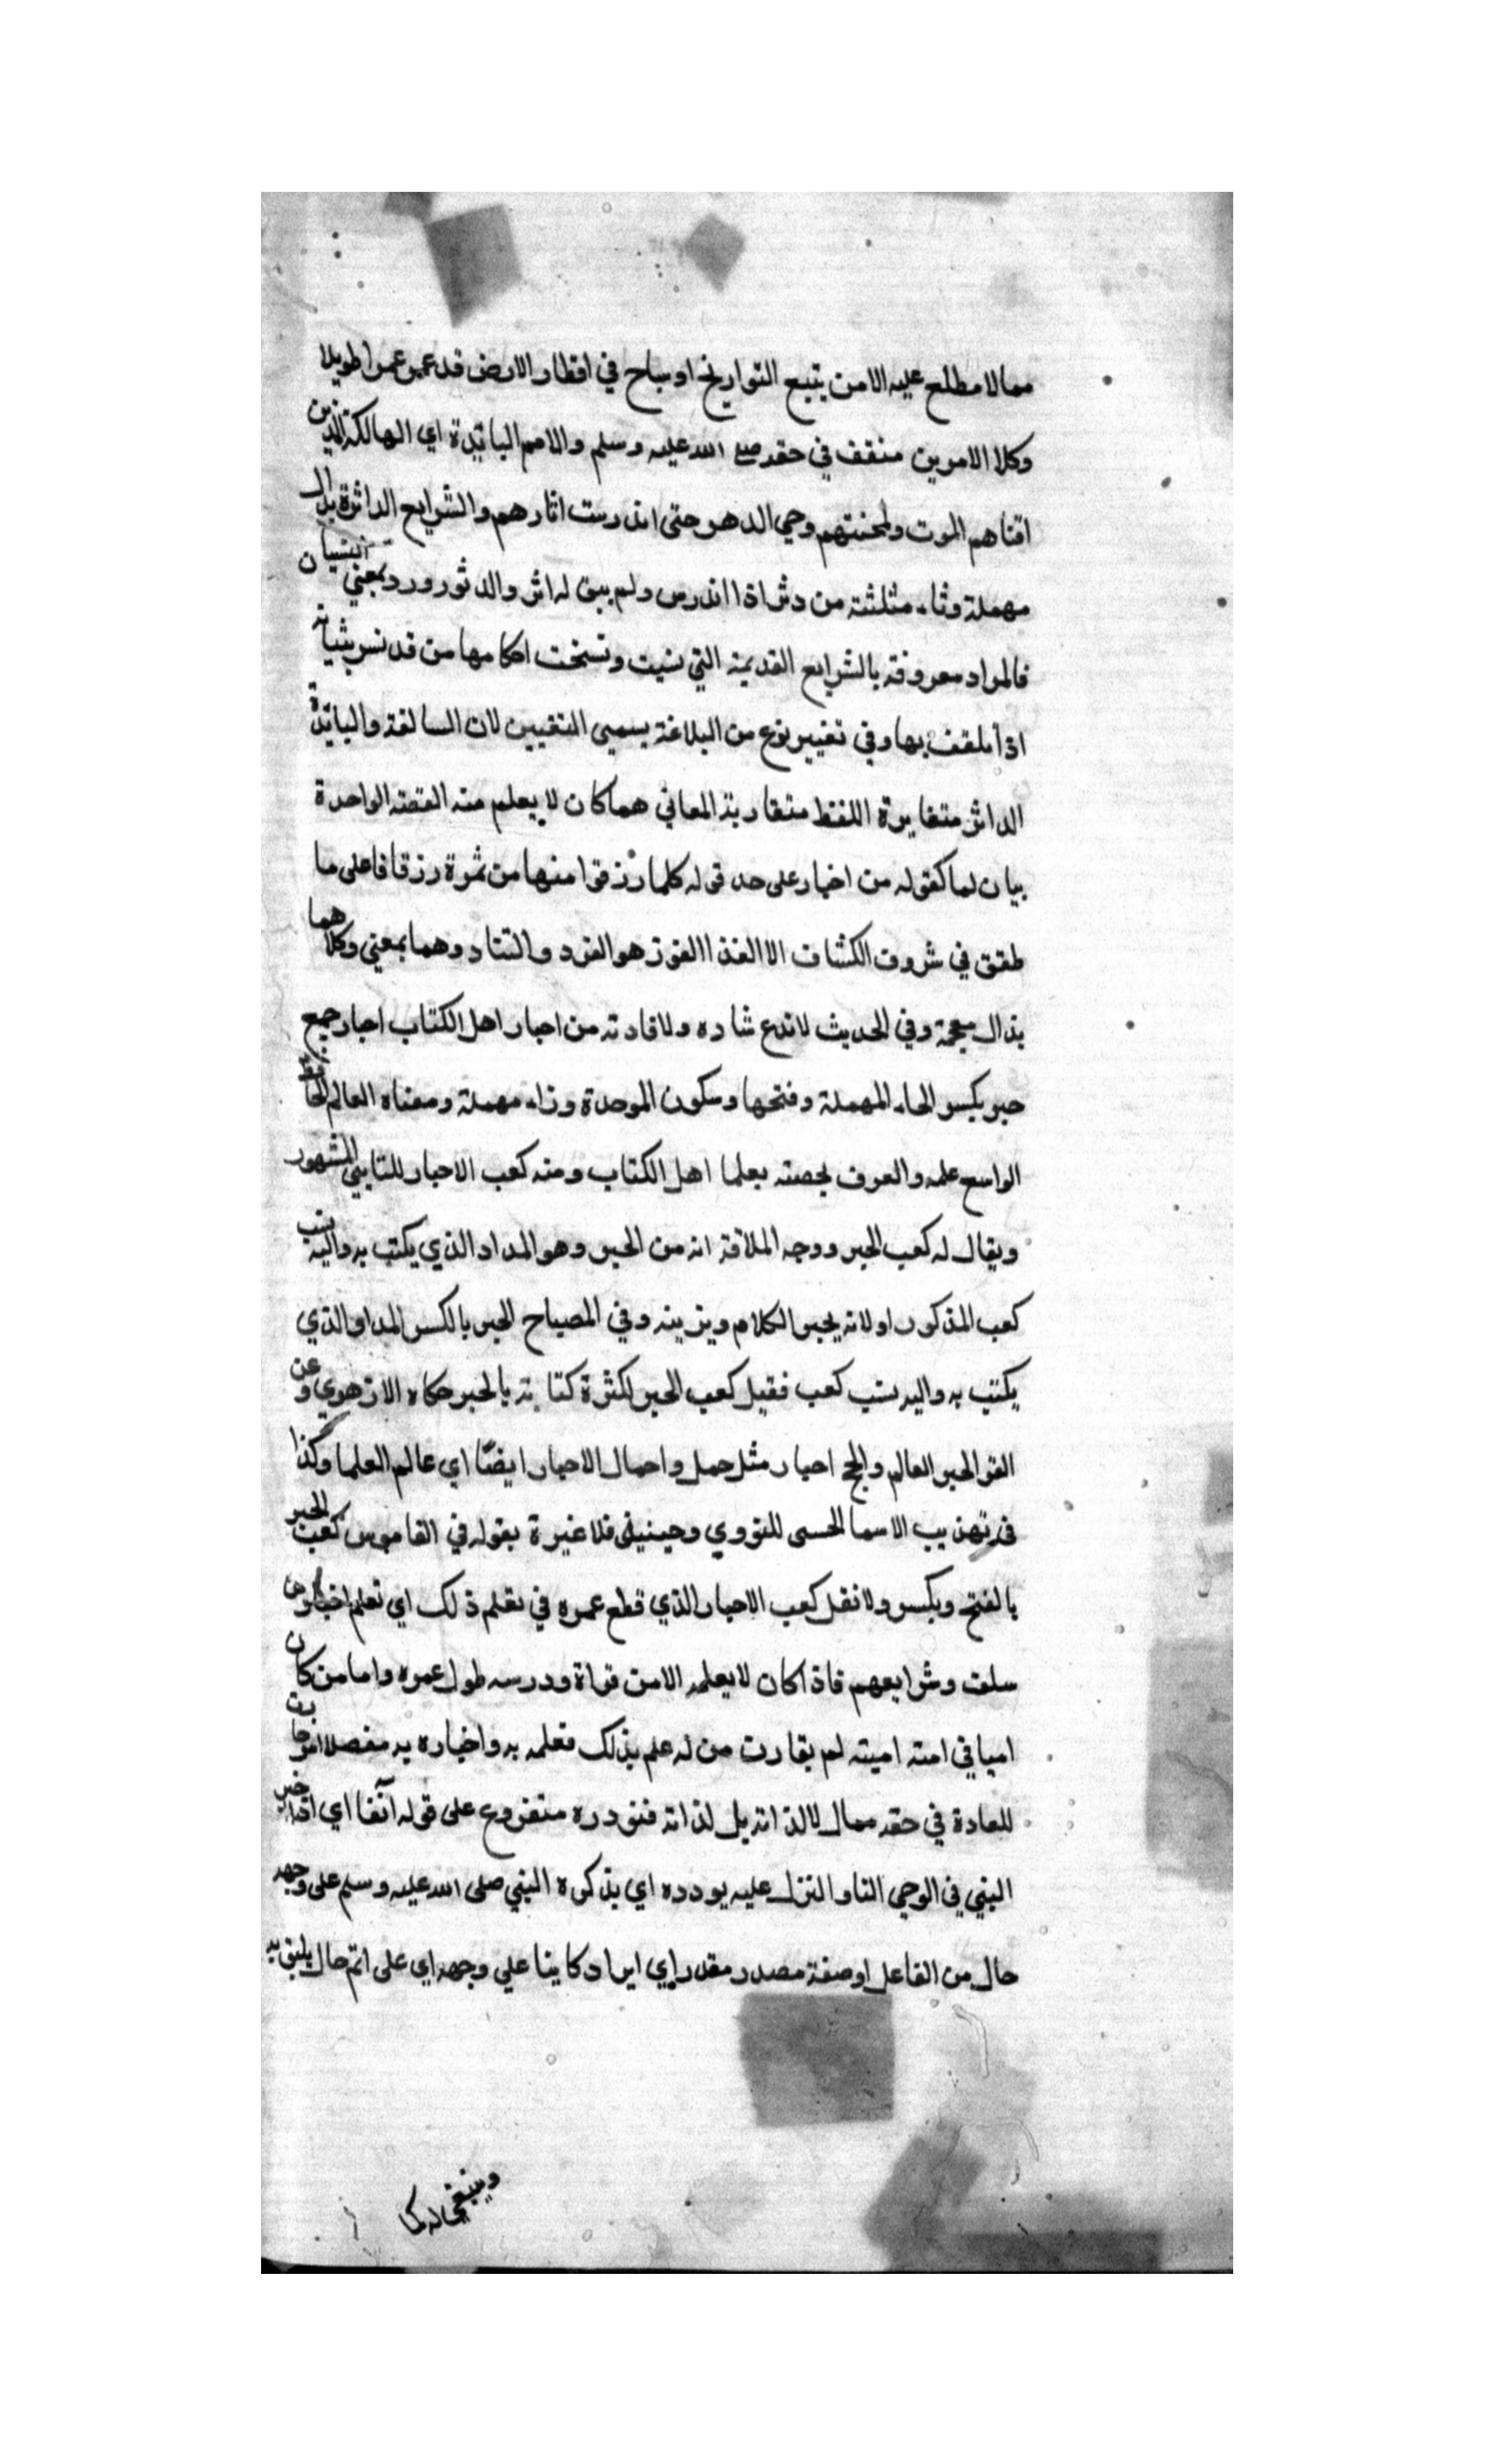 ممالا مطلع عليه الامن يتبع التواريخ او ساح في اقطار الارض قد عمر عمرا طويلا
وكلا الامرين منقف في حقه صلى الله عليه وسلم والامم البائدة اي الهالكة الذين
افناهم الموت وطحنتهم رحي الدهر حتى اندرست اثارهم والشرايع الداثرة بدال
مهملة وثاء مثلثة من دثر اذا اندرس ولم يبق له اثر والدثور ورد بمعني النسيان
فالمراد معروفة بالشرايع القديمة التي نسيت ونسخت احكامها من قد نسر بثيابه
اذا تلفف بها وفي تغيير نوع من البلاغة يسمى التفنن لان السالفة والبائدة
الداثر متغايرة اللفظ متقاربة المعاني مما كان لا يعلم منه القصة الواحدة
بيان لما كقوله من اخبار على حد قوله كلما رزقوا منها من ثمرة رزقا على ما
طقق في شروف الكشاف الا الفذ الفوز هو الفرد والشاد وهما بمعني وكلاهما
بذال معجمة وفي الحديث لا تدع شاده ولا فادته من احبار اهل الكتاب احبار جمع
حبر بكسر الحاء المهملة وفتحها وسكون الموحدة وراء مهملة ومعناه العالم
الواسع علمه والعرف يخصه بعلما اهل الكتاب ومنه كعب الاحبار للتابعي المشهور
ويقال له كعب الحبر ووجه الملاقة انه من الحبر وهو المداد الذي يكتب به واليه ينسب
كعب المذكور او لانه يحبر الكلام ويزينه وفي المصباح الحبر بالكسر المداد الذي
يكتب به واليه نسب كعب فقيل كعب الحبر لكثرة كتابته بالحبر حكاه الازهري وعن
الفر الحبر العالم والجمع احبار مثل حمل واحمال الاحبار ايضا اي عالم العلما وكذا
في تهذيب الاسما الحسى للنووي وحينيذ فلا عبرة بقوله في القاموس كعب الحبر
بالفتح ويكسر ولا تقل كعب الاحبار الذي قطع عمره في تعلم ذلك اي تعلم اخبار من
سلف وشرايعهم فاذا كان لا يعلمه الامن قراة ودرسه طول عمره واما من كان
اميا في امته امية لم يقارن من له علم بذلك فعلمه به واخباره به مفصلا
للعادة في حقه ممال لالذاته بل لذاته فنورده متفرع على قوله آنفا اي
النبي في الوحي التاو النزل عليه يورده اي يذكره النبي صلى الله عليه وسلم على وجهه
حال من الفاعل او صفة مصدر مقدر اي ايراد كاينا علي وجهه اي على اتم حال يليق به
وينبغي له كما